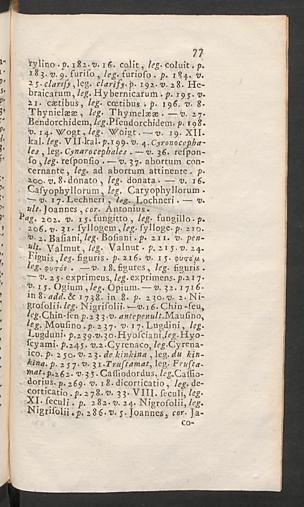 77
rylino. p. 182. v. 16. colit, leg. coluit. p.
183. v. 9. furiso, leg. furioso. p. 184. v.
25. clariss, leg. clariss. p. 192. v. 28. He-
braicarum, leg. Hybernicarum. p. 195. v.
21. cætibus, leg. cœtibus. p. 196. v. 8.
Thynielææ, leg. Thymelææ. — v. 27.
Bendorchidem, leg. Pseudorchidem. p. 198.
v. 14. Wogt, leg. Woigt. — v. 19. XII.
kal. leg. VII. kal. p. 199. v. 4. Cyronocepha-
les, leg. Cynarocephales. — v. 36. respon-
so, leg. responsio. — v. 37. abortum con-
cernante, leg. ad abortum attinente. p.
200. v. 8. donato, leg. donata. — v. 16.
Casyophyllorum, leg. Caryophyllorum.
— v. 17. Lechneri, leg. Lochneri. — v.
ult. Joannes, cor. Antonius.
Pag. 202. v. 15. fungitto, leg. fungillo. p.
206. v. 31. syllogem, leg. sylloge. p. 210.
v. 2. Basiani, leg. Bosiani. p. 211. v. pen-
ult. Valmut, leg. Valnut. p. 215. v. 24.
Figuis, leg. figuris. p. 216. v. 15.
leg. — v. 18. figures, leg. figuris.
— v. 25. exprimeus, leg. exprimens. p. 217.
v. 15. Ogium, leg. Opium. — v. 32. 1716.
in 8. add. & 1738. in 8. p. 230. v. 2. Ni-
grosolii. leg. Nigrisolii. — v. 16. Chin-seu,
leg. Chin-sen p. 233. v. antepenult. Mausino,
leg. Mousino. p. 237. v. 17. Lugdini, leg.
Lugduni. p. 239. v. 30. Hyosciani, leg. Hyo-
scyami. p. 245. v. 2. Cyrenaco, leg. Cyrena-
ico. p. 250. v. 23. de kinkina, leg. du kin-
kina. p. 257. v. 31. Trustamat, leg. Frusta-
mat. p. 262. v. 35. Cassiodordus, leg. Cassio-
dorius. p. 269. v. 18. dicorticatio, leg. de-
corticatio. p. 278. v. 33. VIII. seculi, leg.
XI. seculi. p. 282. v. 24. Nigrosolii, leg.
Nigrisolii. p. 286. v. 5. Joannes, cor. Ja-
co-